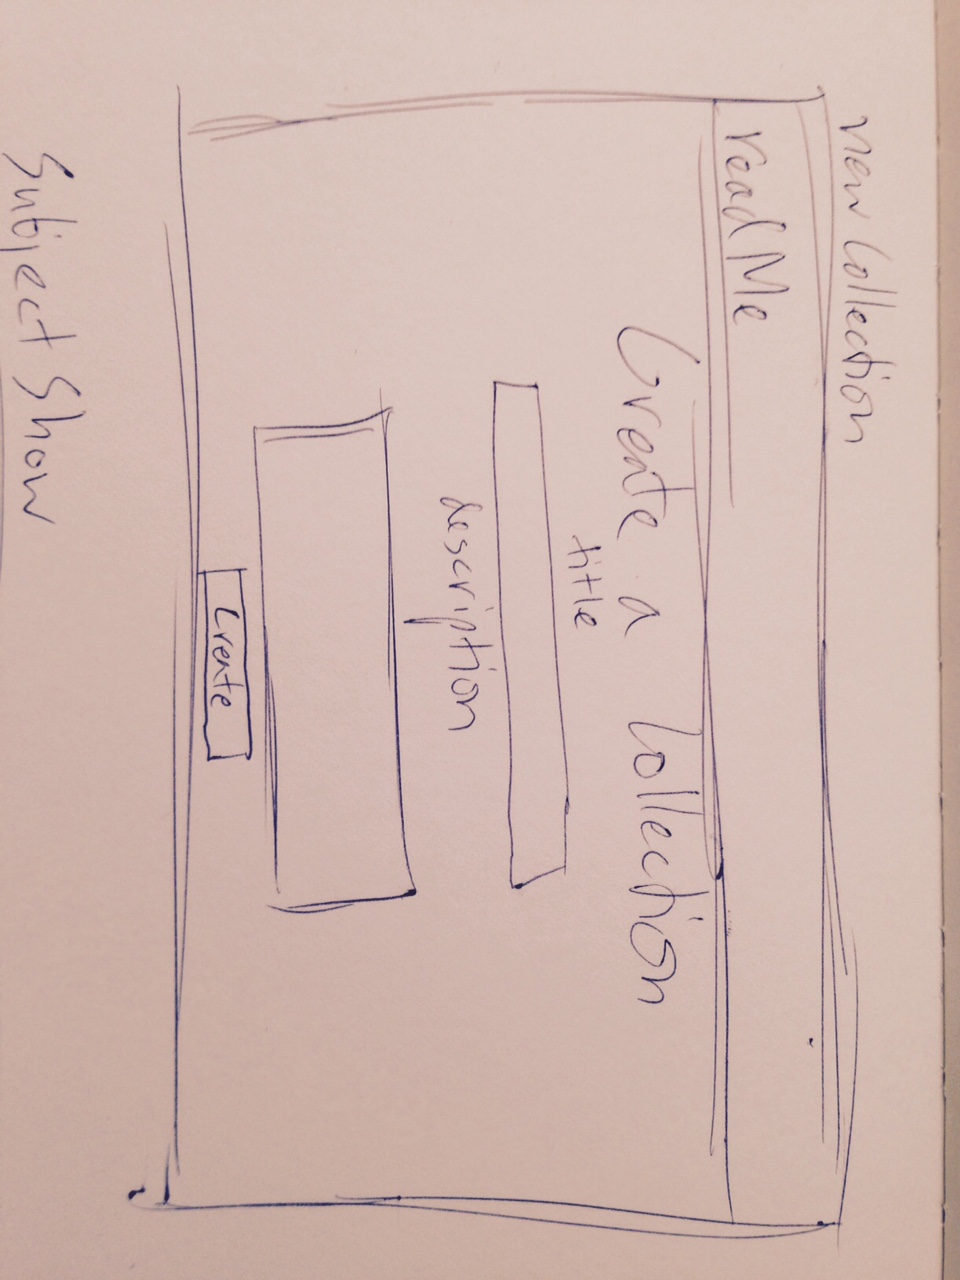 new Collection
readMe
Create a Collection
title
description
Create
Subject Show